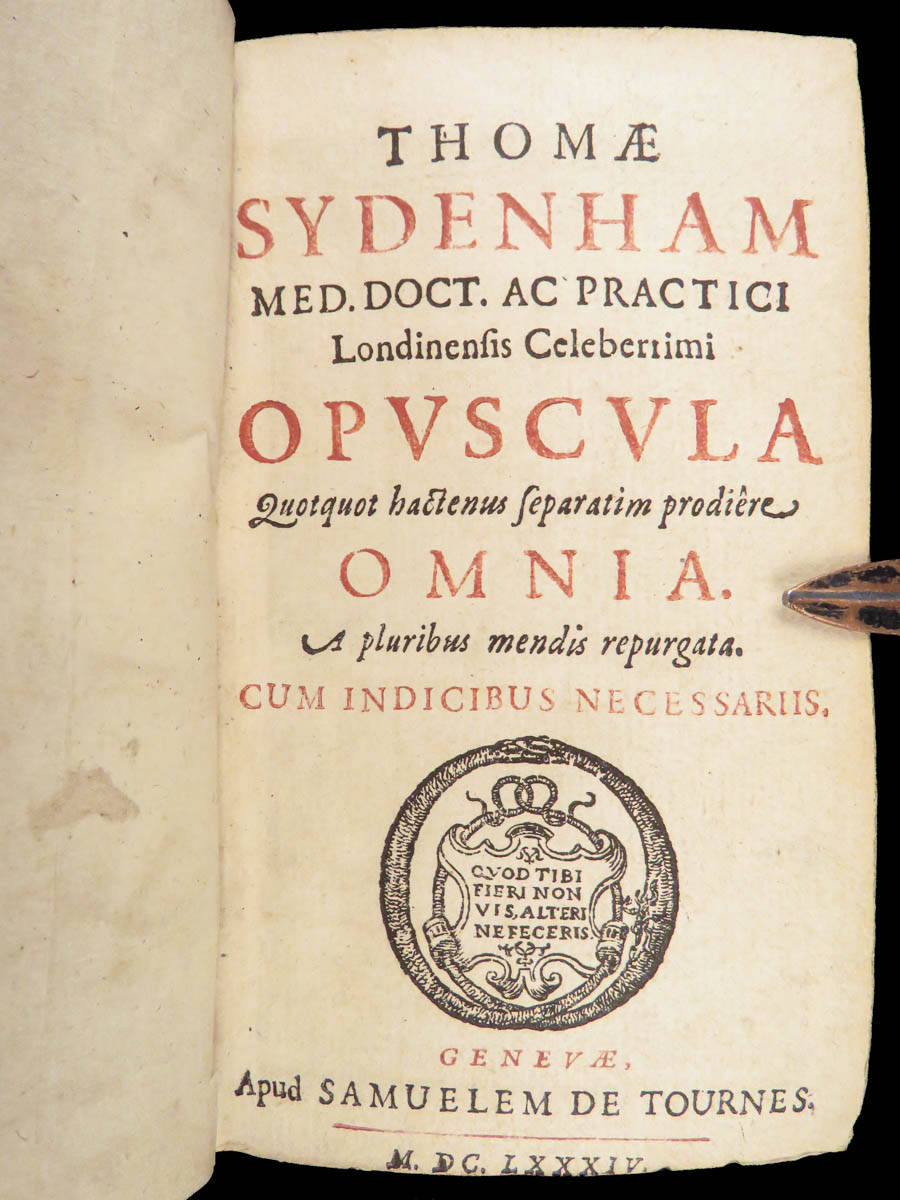 THOMÆ
SYDENHAM
MED. DOCT. AC PRACTICI
Londinenſis Celeberrimi
OPVSCVLA
Quotquot hactenus ſeparatim prodiêre
OMNIA.
A pluribus mendis repurgata.
CUM INDICIBUS NECESSARIIS.
QVOD TIBI
FIERI NON
VIS, ALTERI
NE FECERIS.
GENEVÆ,
Apud SAMUELEM DE TOURNES.
M. DC. LXXXIV.